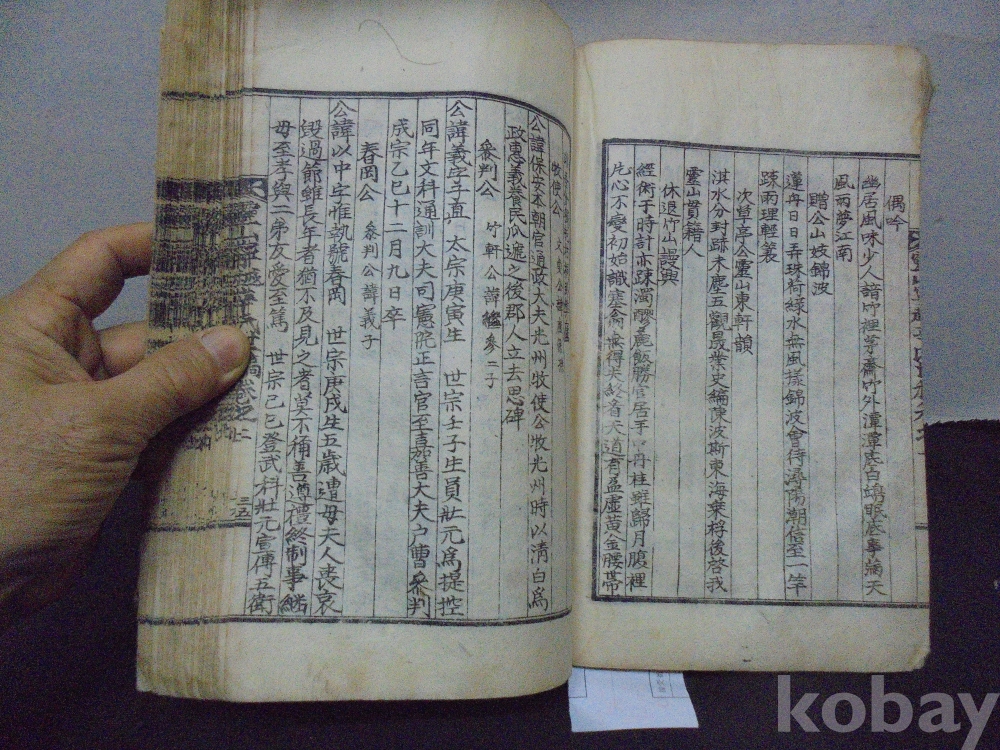 偶吟
幽居風味少人諳竹裡茅齋竹外潭潭底白鷗眼底事滿天
風雨夢江南
贈公山妓錦波
蓮舟日日弄珠猗綠水無風樣錦波會待潯陽朝信至一竿
踈雨理輕蓑
次草亭公靈山東軒韻
淇水分封跡未塵五觀晨業史編陳波斯東海乘桴後啓我
靈山貫籍人
休退竹山謾興
經術于時計亦踈濁醪麁飯勝官居手 丹桂難歸月腹裡
片心不變初始識塞翁 得 終 天道有盈虛黃金腰帶
牧使公
公諱保安本朝官通政大夫光州牧使公牧光州時以淸白爲
政惠義養民瓜遞之後郡人立去思碑
叅判公 竹軒公諱 叅二子
公諱義字子直 太宗庚寅生 世宗壬子生員壯元爲提控
同年文科通訓大夫司憲院正言官至嘉善大夫户曹叅判
成宗乙巳十二月九日卒
春岡公 叅判公諱義子
公諱以中字惟執號春岡 世宗庚戌生五歲遭母夫人喪哀
毁過節雖長年者猶不及見之者莫不稱善遵禮終制事繼
母至孝與二弟友愛至篤 世宗己巳登武科壯元宣傳五衛
稿卷之二
三五
kobay